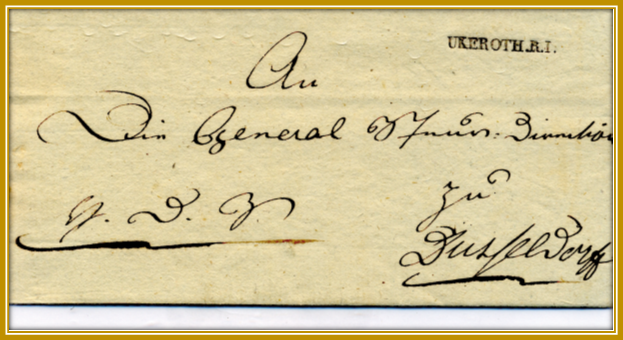 UKEROTH.R.I.
An
Die General Steuer-Direction
zu
Düsseldorff